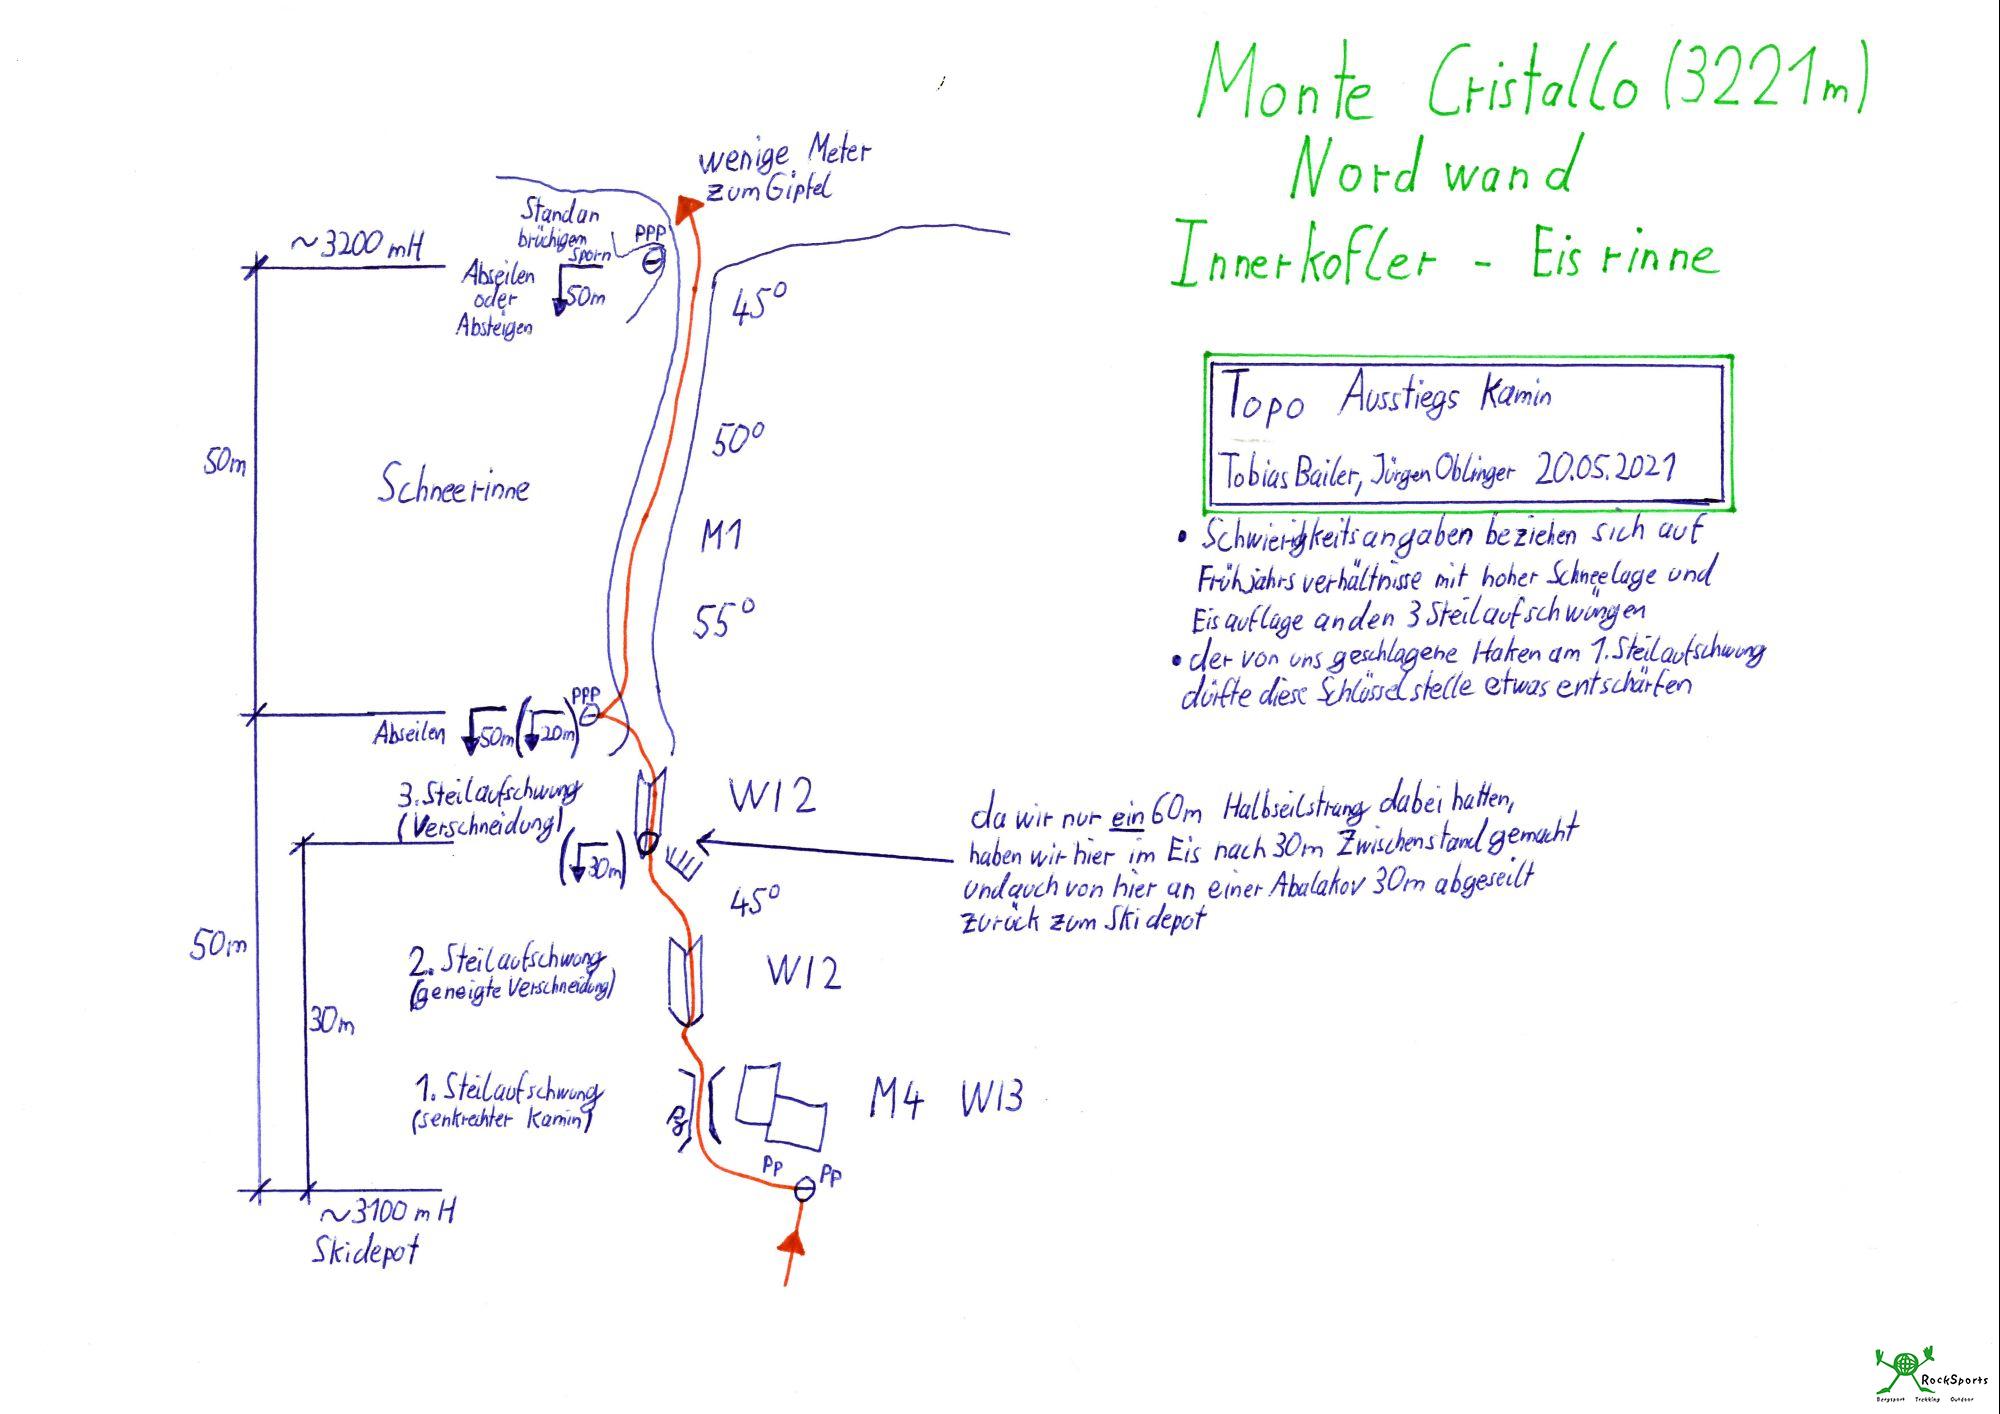 Monte Cristallo (3221m)
Nordwand
Innerkofler - Eisrinne
Topo Ausstiegs Kamin
Tobias Bailer, Jürgen Oblinger 20.05.2021
• Schwierigkeitsangaben beziehen sich auf
Frühjahrsverhältnisse mit hoher Schneelage und
Eisauflage an den 3 Steilaufschwüngen
• der von uns geschlagene Haken am 1. Steilaufschwung
dürfte diese Schlüsselstelle etwas entschärfen
wenige Meter
zum Gipfel
Stand an
brüchigem
Sporn
PPP
~3200 mH
Abseilen
oder
Absteigen
50m
45°
50°
50m
Schneerinne
M1
55°
PPP
Abseilen
50m (20m)
3. Steilaufschwung
(Verschneidung)
WI2
(30m)
da wir nur ein 60m Halbseilstrang dabei hatten,
haben wir hier im Eis nach 30m Zwischenstand gemacht
und auch von hier an einer Abalakov 30m abgeseilt
zurück zum Skidepot
45°
50m
2. Steilaufschwung
(geneigte Verschneidung)
WI2
30m
1. Steilaufschwung
(senkrechter Kamin)
M4 WI3
PP
PP
~3100 mH
Skidepot
RockSports
Bergsport Trekking Outdoor